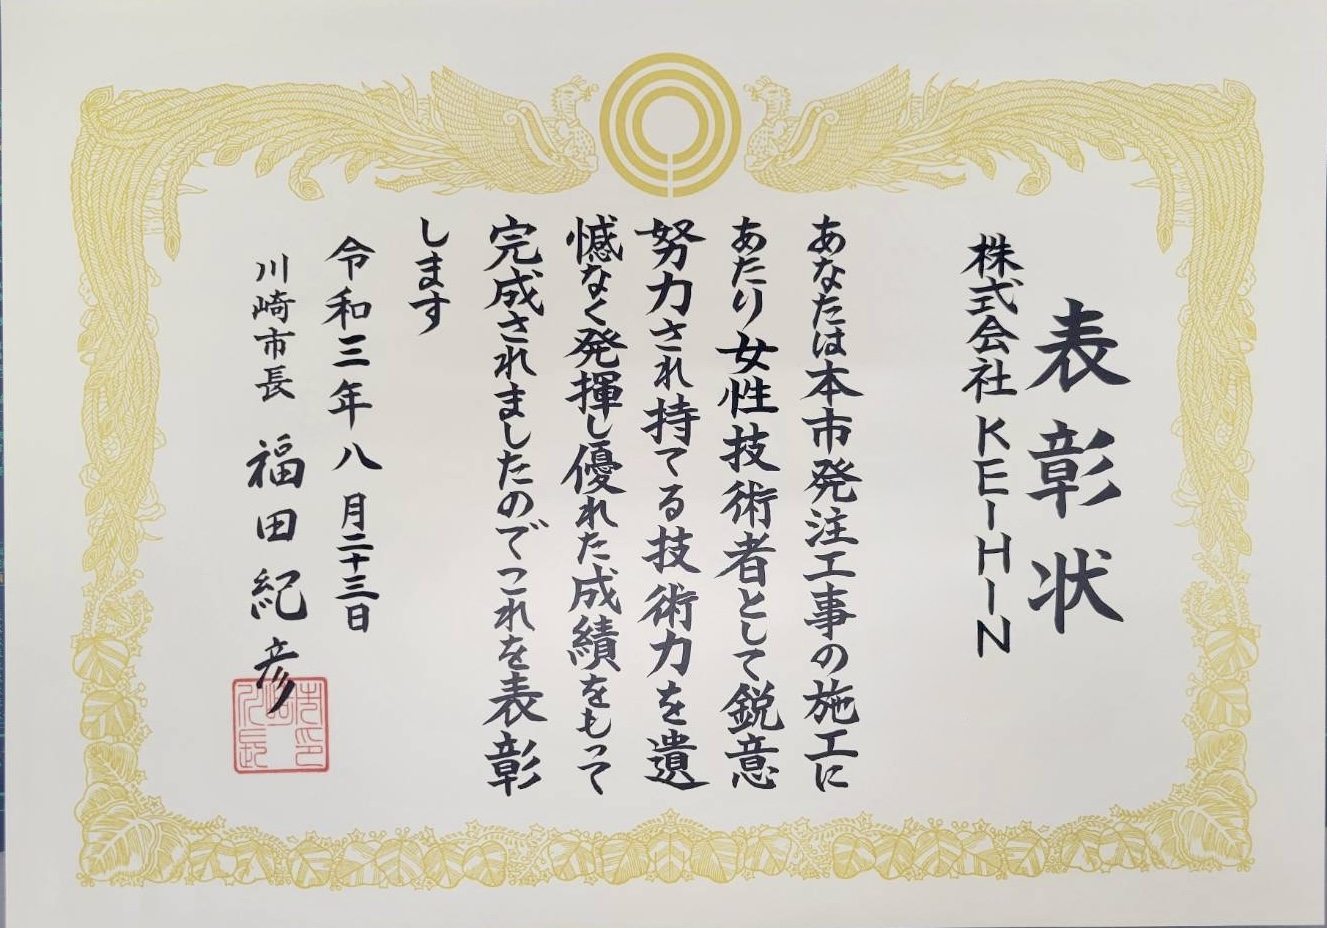 表彰状
株式会社KEIHIN
あなたは本市発注工事の施工に
あたり女性技術者として鋭意
努力され持てる技術力を遺
憾なく発揮し優れた成績をもって
完成されましたのでこれを表彰
します
令和三年八月二十三日
川崎市長 福田紀彦